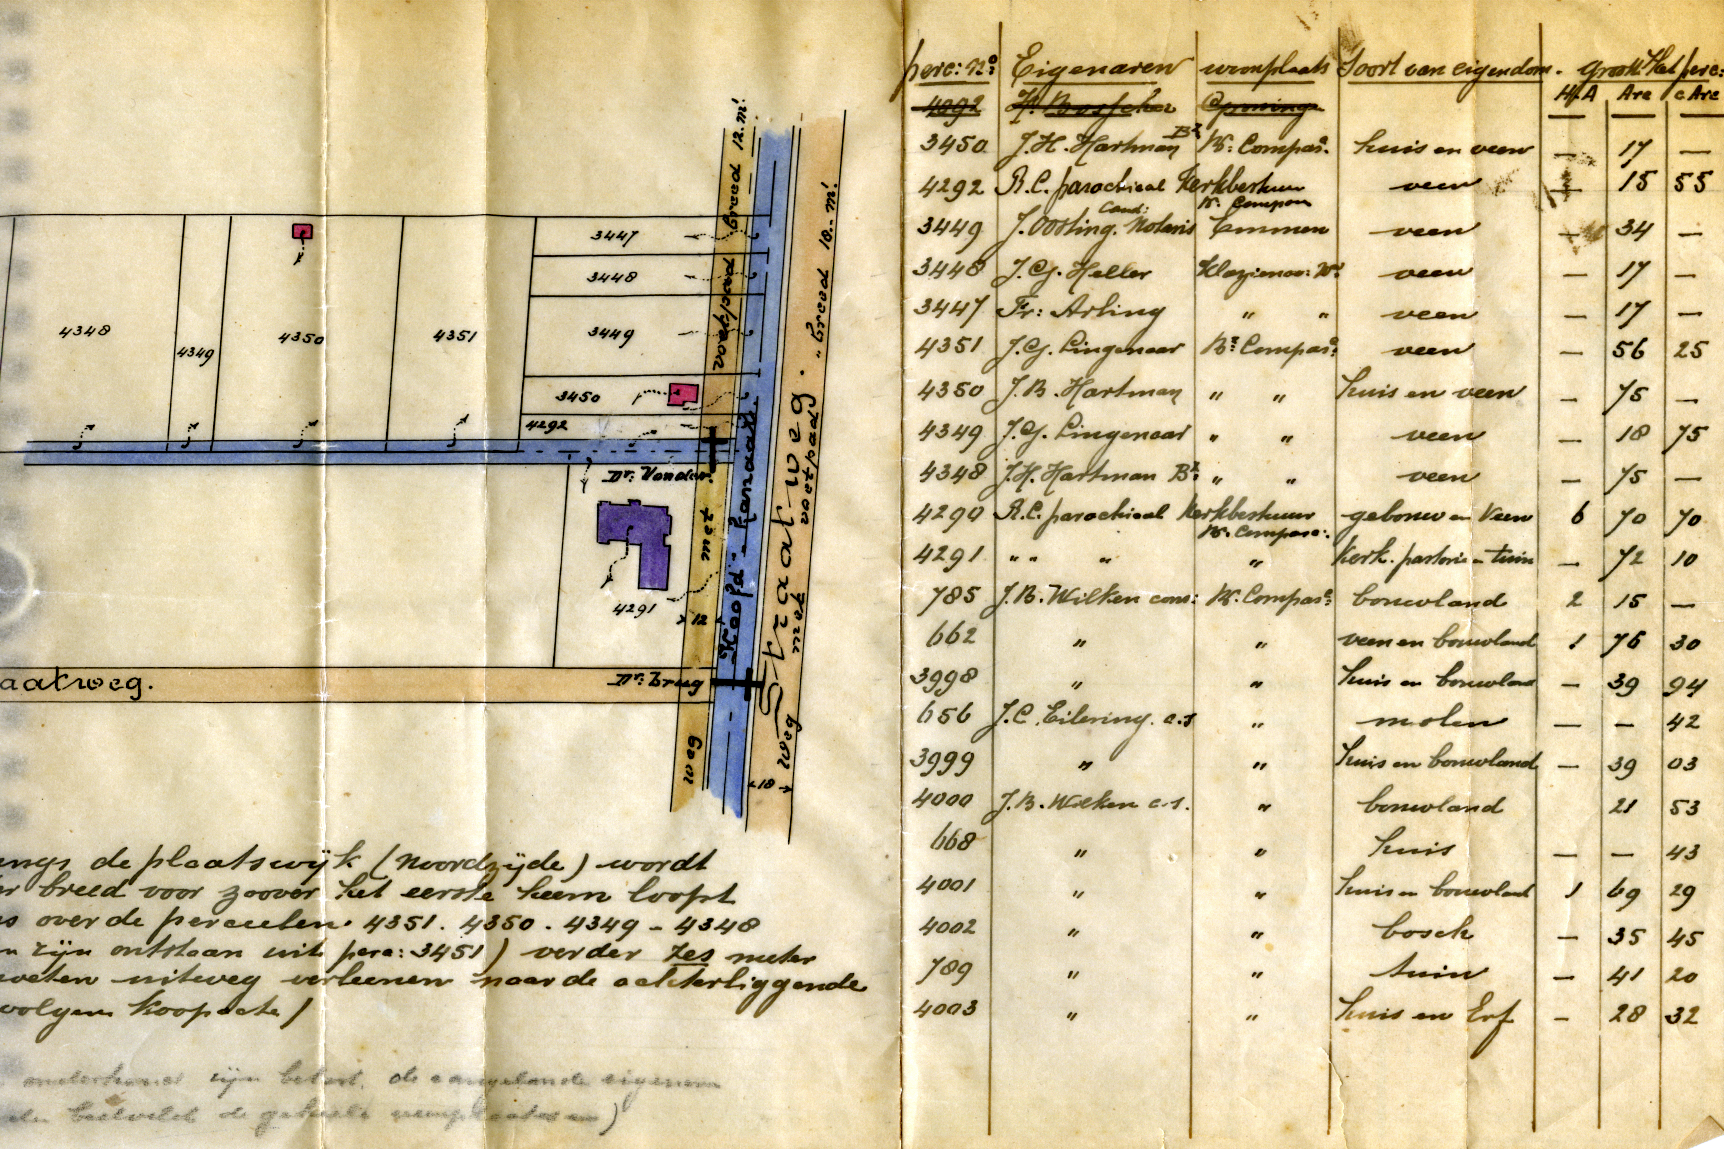 breed 12. m!
voetpad
3447
3448
3449
3450
4292
4348
4349
4350
4351
Dr: Vonder
zew met
Hoofd - Kanaal
Straatweg.
voetpad, breed 18. m!
met
weg
4291
12
aatweg.
Dr: brug
weg
18
langs de plaatswijk (Noordzijde) wordt
breed voor zoover het eerste heem loopt
over de perceelen. 4351. 4350. 4349 - 4348
zijn ontstaan uit perc: 3451) verder zes meter
moeten uitweg verleenen naar de achterliggende
volgens koopacte)
onderhoud zijn belast, de aangelande eigenaren
de geheele
perc: No: Eigenaren woonplaats Soort van eigendom. grootte het perc:
H.A Are c Are
4292 H. Bosscher
3450 J. H. Hartman Bz Kr. Compas: huis en veen — 17 —
4292 R.C. parochieal Kerkbestuur veen — 15 55
Kr. Compas
Cand:
3449 J. Oosting. Notaris Emmen veen — 34 —
3448 J. G. Heller Klazienav: N: veen — 17 —
3447 Fr: Arling " " veen — 17 —
4351 J. G. Lingenaar Kr: Compas: veen — 56 25
4350 J. B. Hartman " " huis en veen — 75 —
4349 J. G. Lingenaar " " veen — 18 75
4348 J. H. Hartman Bz: " " veen — 75 —
4290 R.C. parochieal Kerkbestuur gebouw en Veen 6 70 70
Kr. Compasc:
4291 " " " " Kerk. pastorie en tuin — 72 10
785 J. B. Wilken cons: Kr. Compas: bouwland 2 15 —
662 " " veen en bouwland 1 76 30
3998 " " huis en bouwland — 39 94
656 J. C. Eilering. c.s " molen — — 42
3999 " " huis en bouwland — 39 03
4000 J. B. Wilken c.s. " bouwland 21 53
668 " " huis — — 43
4001 " " huis en bouwland 1 69 29
4002 " " bosch — 35 45
789 " " tuin — 41 20
4003 " " huis en Erf — 28 32